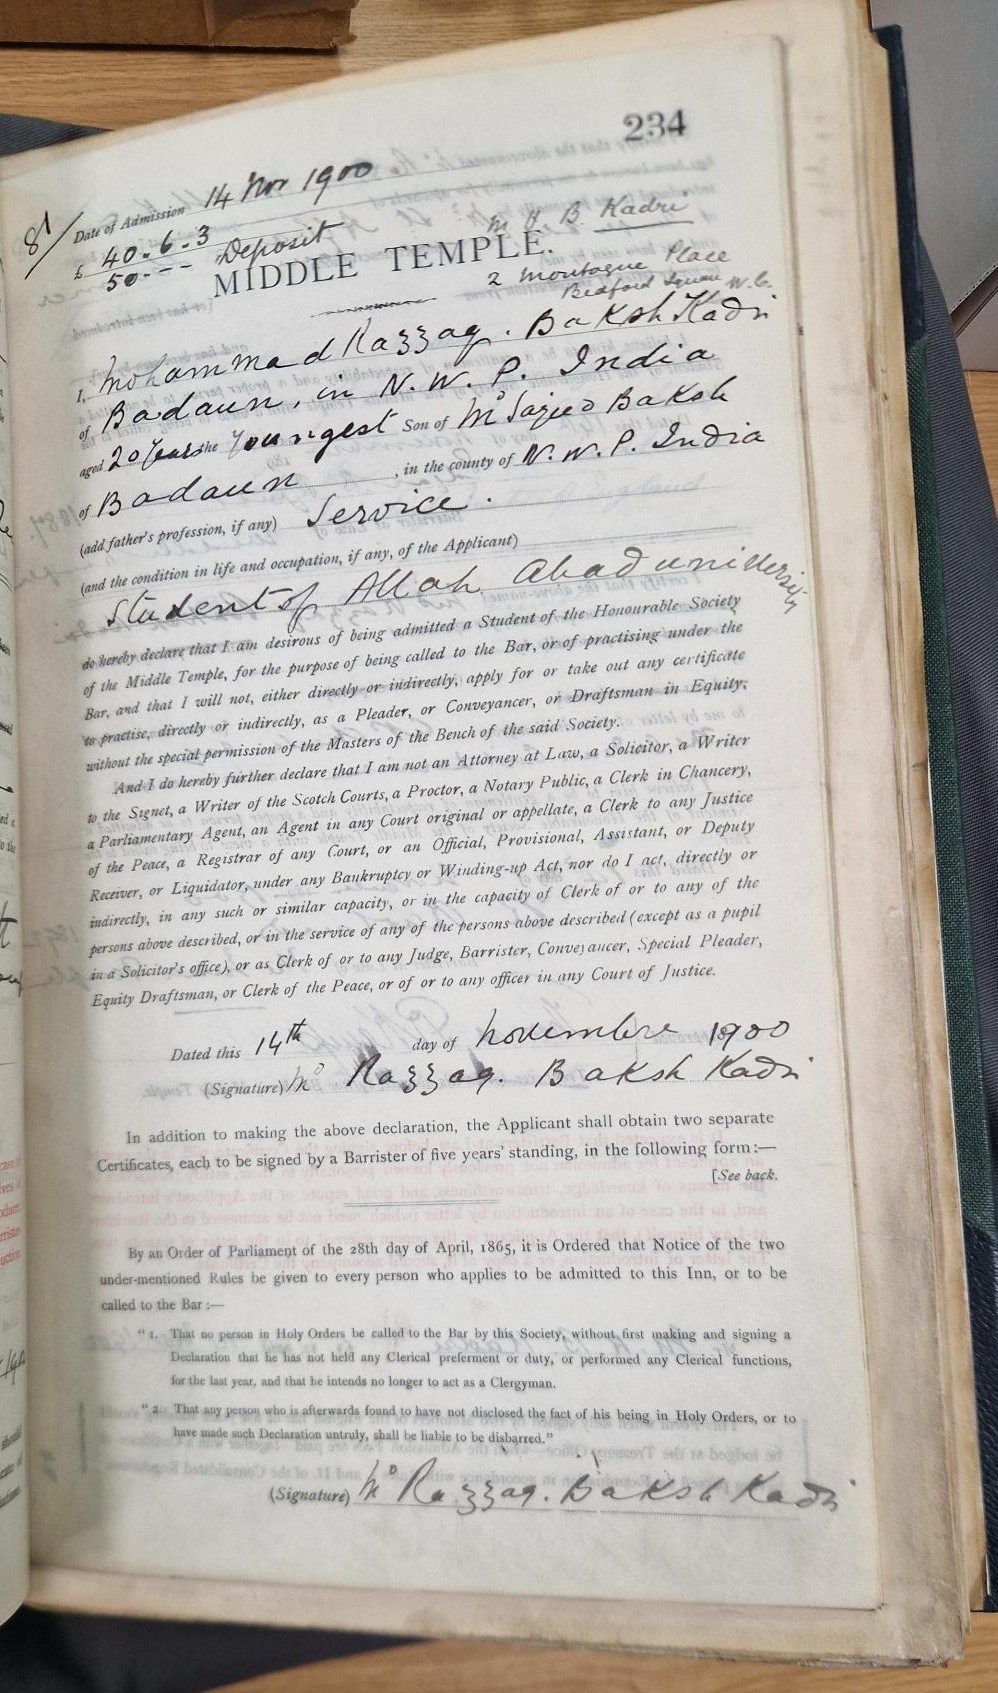 234
81/
Date of Admission 14 Nov 1900
£ 40 . 6 . 3
50 - - - Deposit
M R B. Kadri
MIDDLE TEMPLE.
2 Montague Place
Bedford Square W.C.
I, Mohammad Razzaq . Baksh Kadri
of Badaun, in N. W. P. India
aged 20 years the Youngest Son of Mº Sajeed Baksh
of Badaun , in the county of N. W. P. India
(add father's profession, if any) Service .
(and the condition in life and occupation, if any, of the Applicant)
Student of Allah abad university
do hereby declare that I am desirous of being admitted a Student of the Honourable Society
of the Middle Temple, for the purpose of being called to the Bar, or of practising under the
Bar, and that I will not, either directly or indirectly, apply for or take out any certificate
to practise, directly or indirectly, as a Pleader, or Conveyancer, or Draftsman in Equity,
without the special permission of the Masters of the Bench of the said Society.
And I do hereby further declare that I am not an Attorney at Law, a Solicitor, a Writer
to the Signet, a Writer of the Scotch Courts, a Proctor, a Notary Public, a Clerk in Chancery,
a Parliamentary Agent, an Agent in any Court original or appellate, a Clerk to any Justice
of the Peace, a Registrar of any Court, or an Official, Provisional, Assistant, or Deputy
Receiver, or Liquidator, under any Bankruptcy or Winding-up Act, nor do I act, directly or
indirectly, in any such or similar capacity, or in the capacity of Clerk of or to any of the
persons above described, or in the service of any of the persons above described (except as a pupil
in a Solicitor's office), or as Clerk of or to any Judge, Barrister, Conveyancer, Special Pleader,
Equity Draftsman, or Clerk of the Peace, or of or to any officer in any Court of Justice.
Dated this 14th day of novembre 1900
(Signature) Mº Razzaq. Baksh Kadri
In addition to making the above declaration, the Applicant shall obtain two separate
Certificates, each to be signed by a Barrister of five years' standing, in the following form:—
[See back.
By an Order of Parliament of the 28th day of April, 1865, it is Ordered that Notice of the two
under-mentioned Rules be given to every person who applies to be admitted to this Inn, or to be
called to the Bar:—
"1. That no person in Holy Orders be called to the Bar by this Society, without first making and signing a
Declaration that he has not held any Clerical preferment or duty, or performed any Clerical functions,
for the last year, and that he intends no longer to act as a Clergyman.
"2. That any person who is afterwards found to have not disclosed the fact of his being in Holy Orders, or to
have made such Declaration untruly, shall be liable to be disbarred."
(Signature) Mº Razzaq. Baksh Kadri